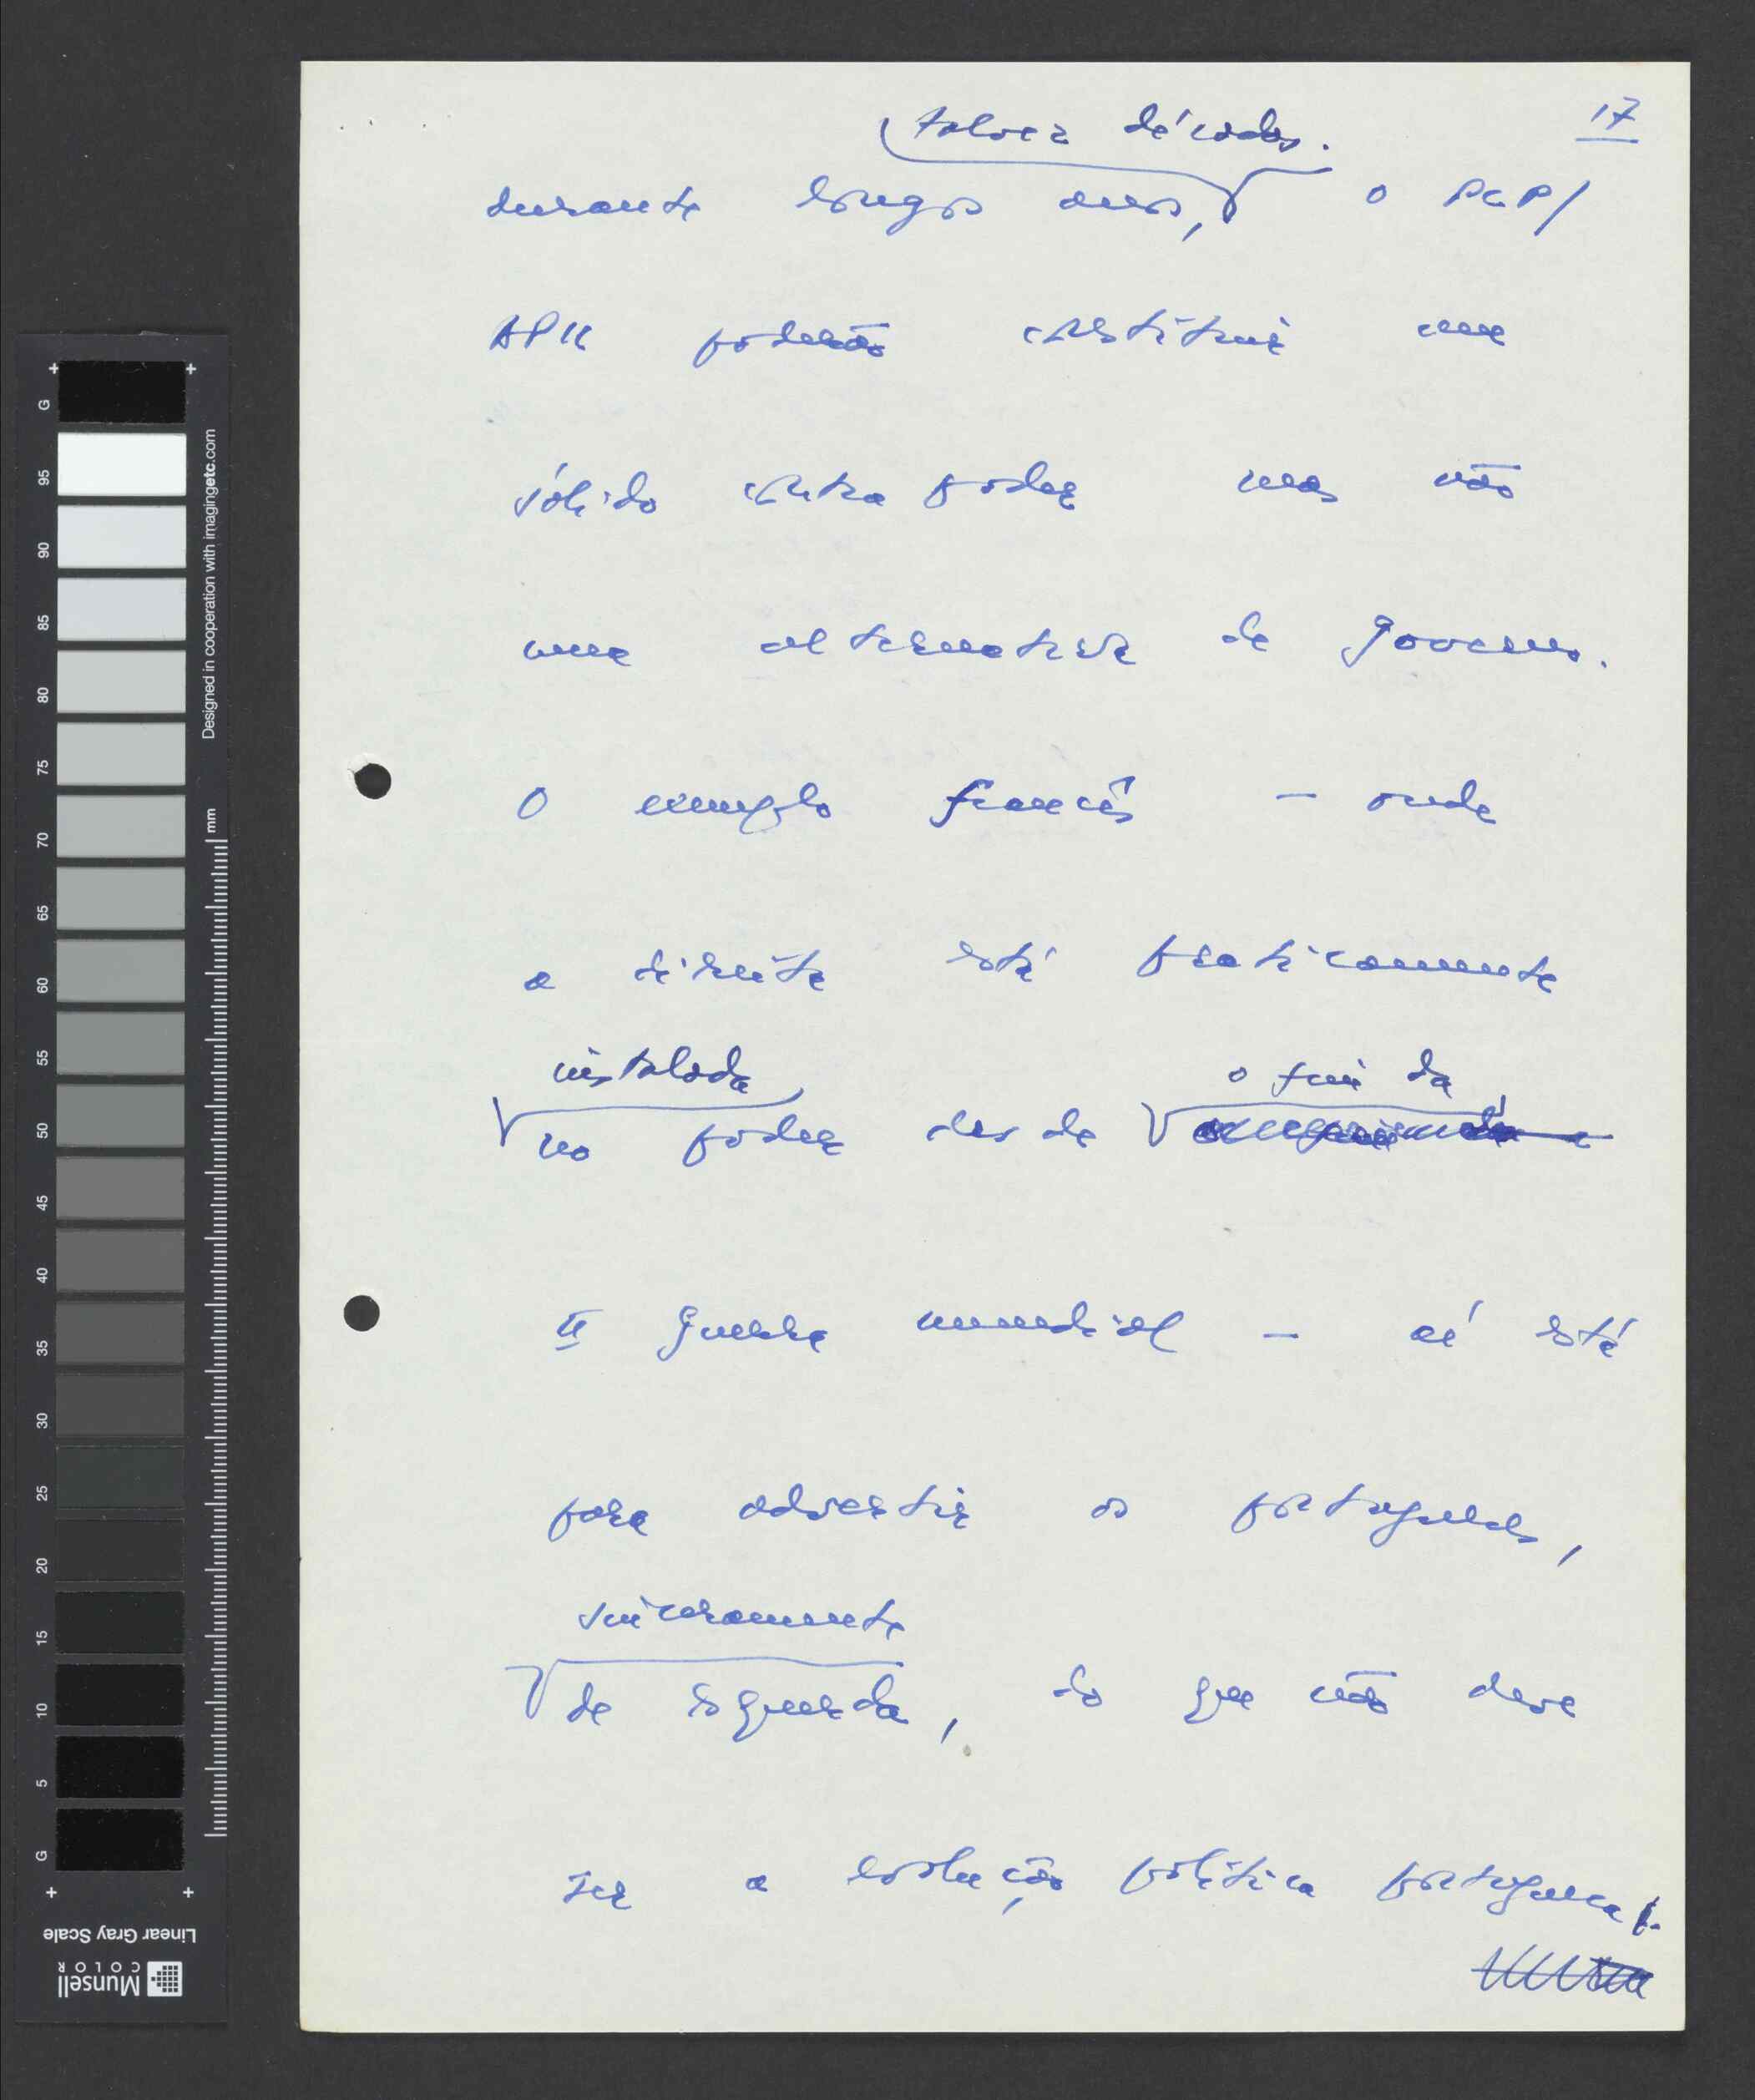 17
talvez décadas.
durante longos anos, o PCP/
APU poderão constituir um
sólido contra poder mas não
uma alternativa de governo.
O exemplo francês – onde
a direita está praticamente
instalada o fim da
no poder desde
II guerra mundial – aí está
para advertir os portugueses,
sinceramente
de esquerda, do que não deve
ser a evolução política portuguesa.
G
95
90
85
80
75
70
65
60
55
50
45
40
35
30
25
20
15
10
5
G
Designed in cooperation with imagingetc.com
mm
Linear Gray Scale
Munsell
COLOR